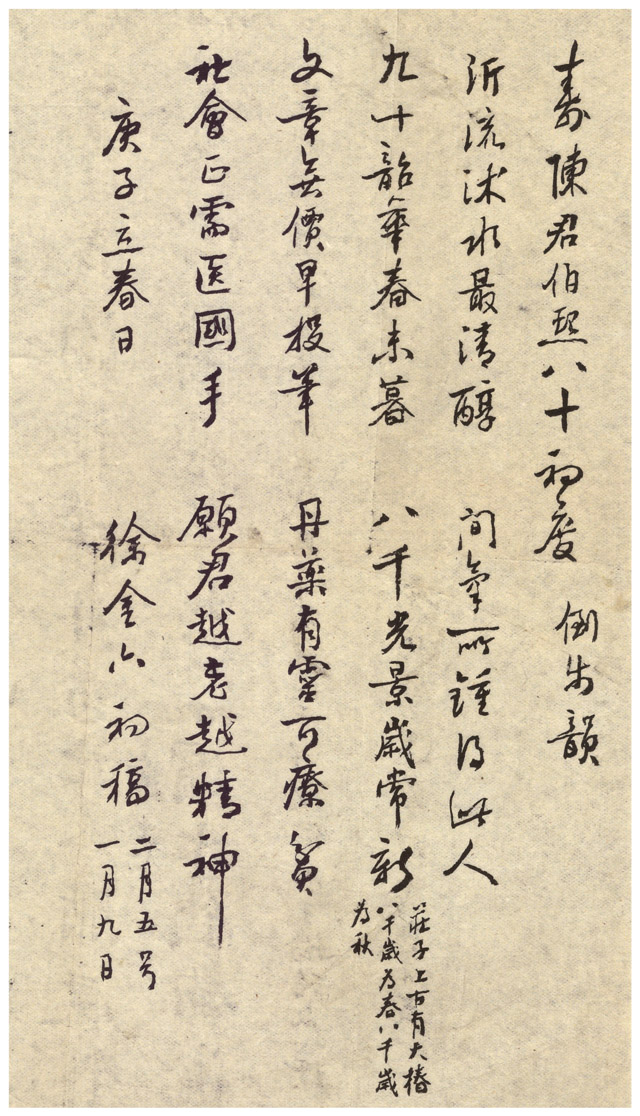 壽陳君伯熙八十初度 倒步韻
沂流沭水最清醇 間氣所鍾得此人
九十韶華春未暮 八千光景歲常新
莊子上古有大椿
八千歲為春八千歲
為秋
文章無價早投筆 丹藥有靈可療貧
社會正需医國手 願君越老越精神
庚子立春日 徐金六初稿
二月五号
一月九日